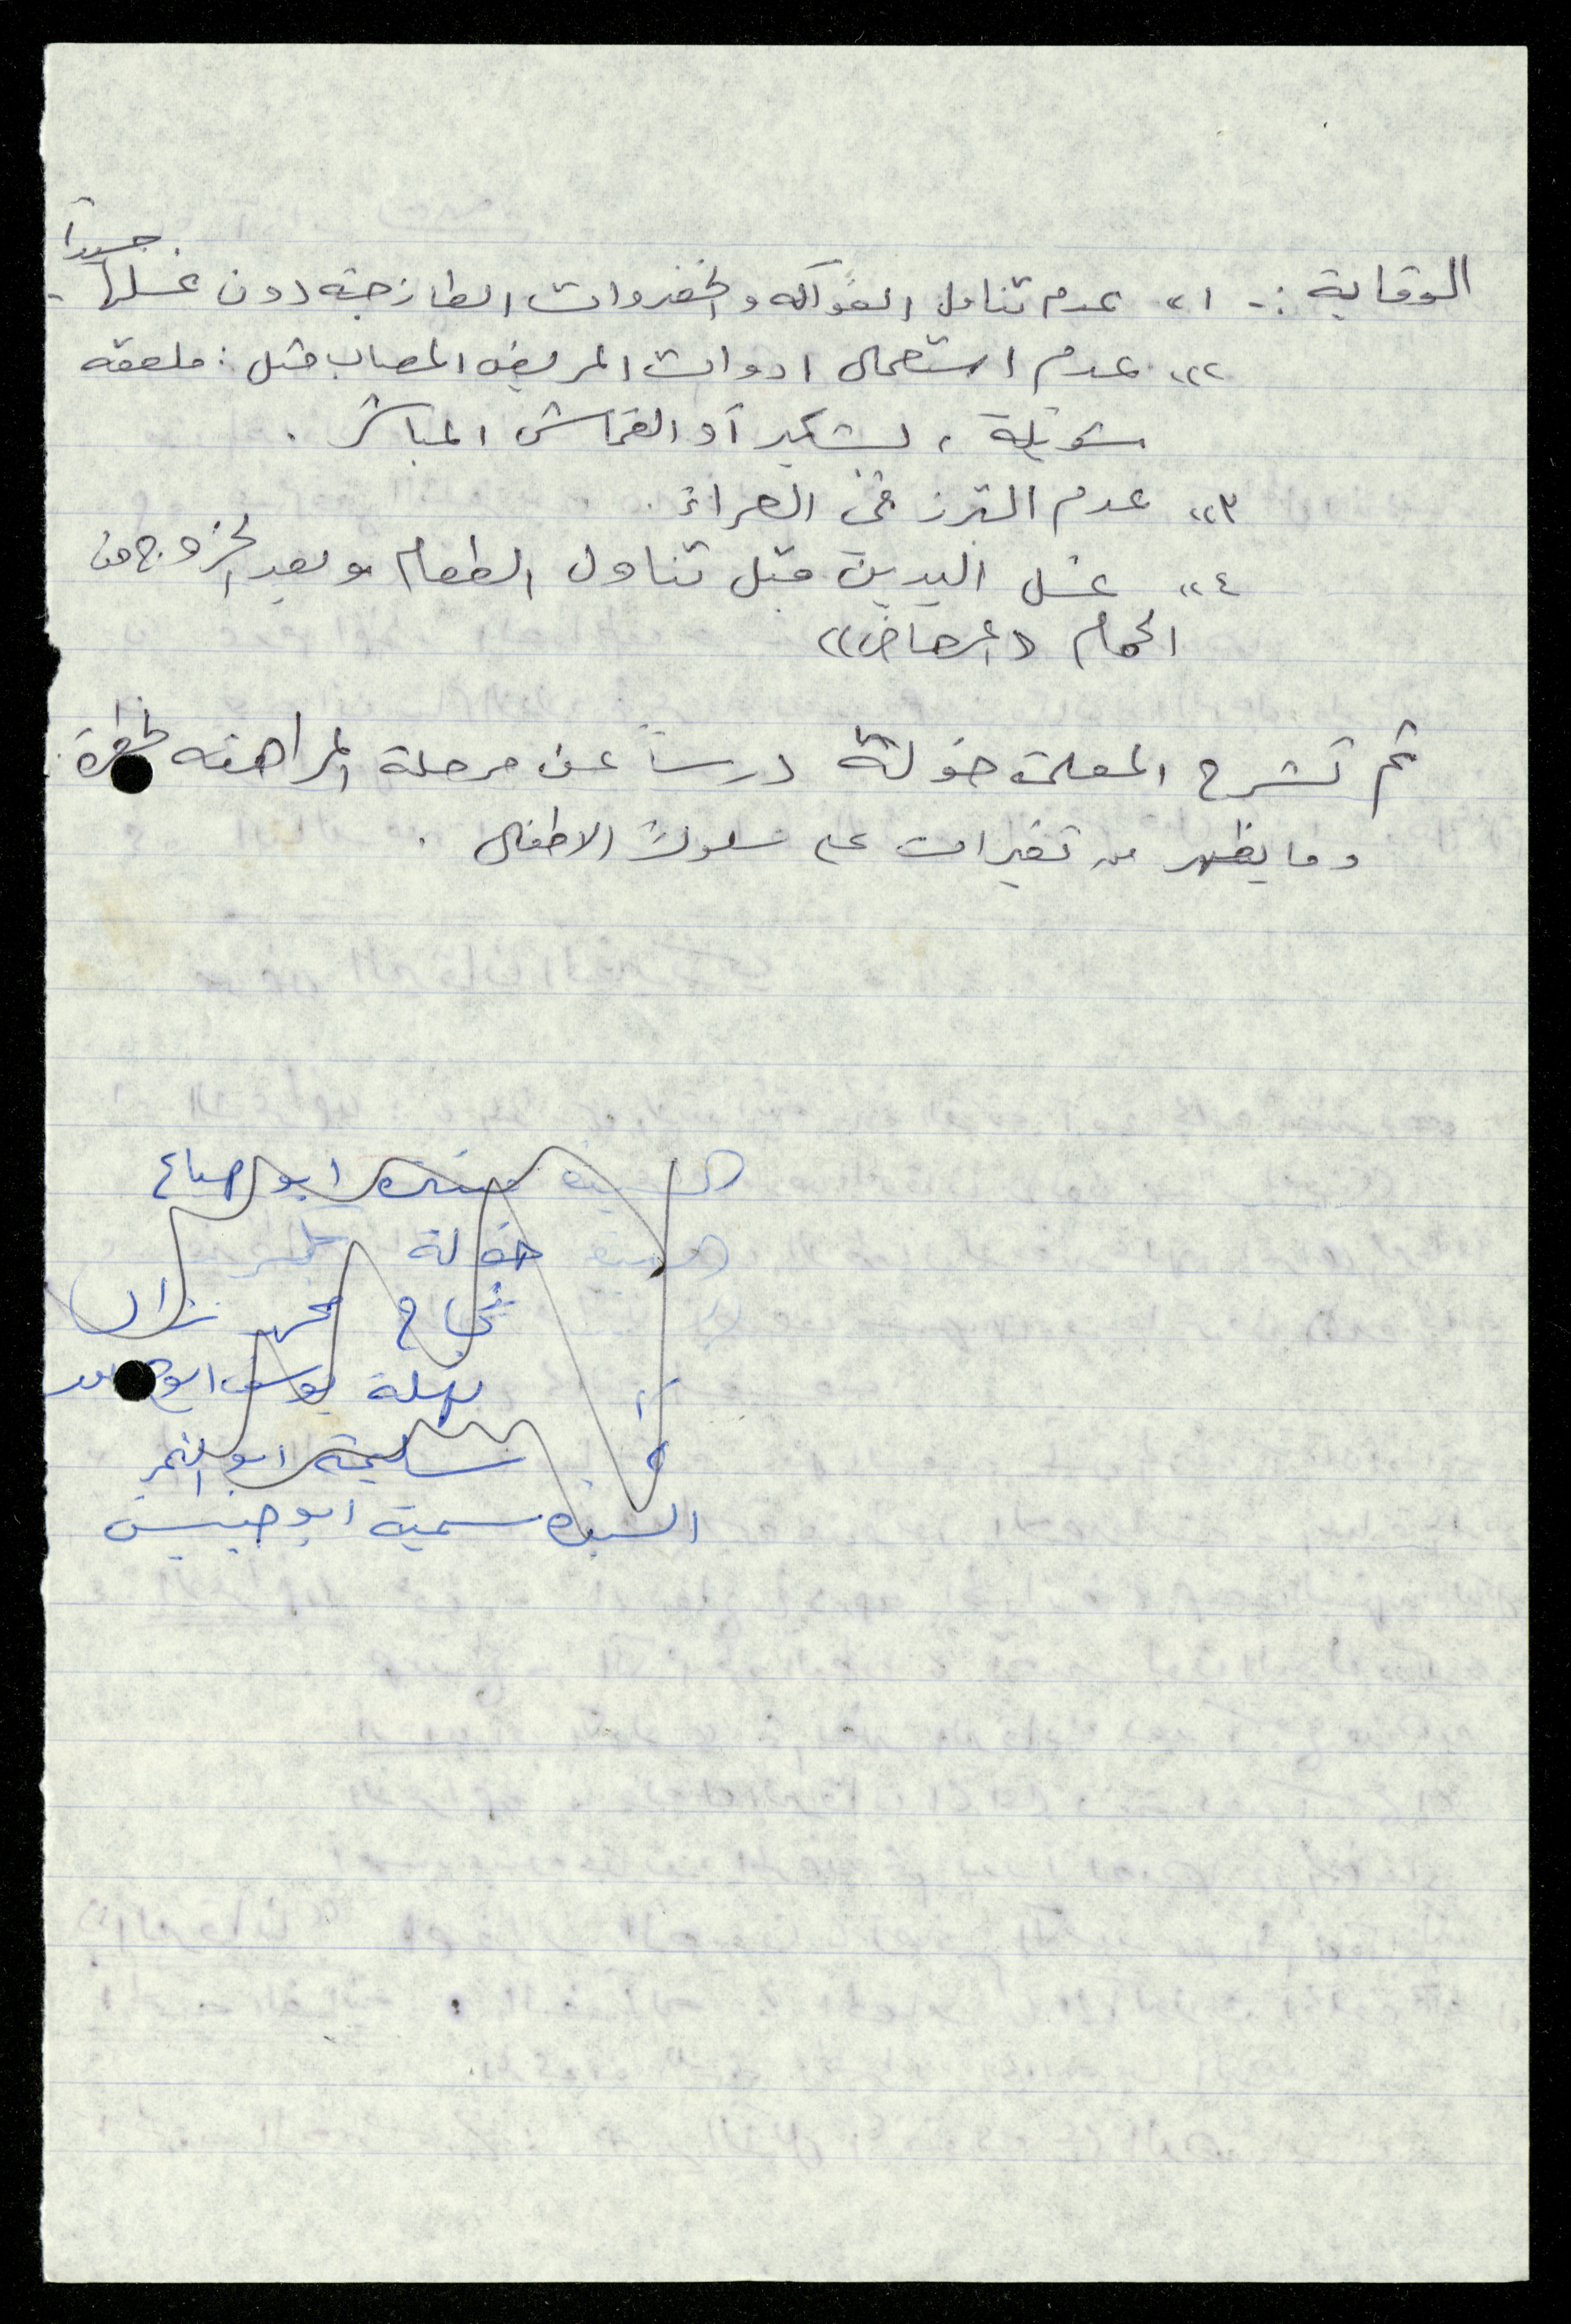 جيداً
الوقاية :- ١» عدم تناول الفواكه والخضروات الطازجة دون غسلها .
٢» عدم استعمال ادوات المريض المصاب مثل : ملعقه
شوكة ، بشكير أو القماش المباشر .
٣» عدم التبرز في العراء .
٤» غسل اليدين قبل تناول الطعام وبعد الخروج من
الحمام »
تم تشرح المعلمة خولة درساً عن مرحلة المراهقه
وما يظهر من تغيرات على سلوك الاطفال .
السيدة ابو صباع
السيدة خولة
نجاح محمد نزال
نهلة يوسف
سليمة ابو النمر
السيدة سمية ابو حبيس